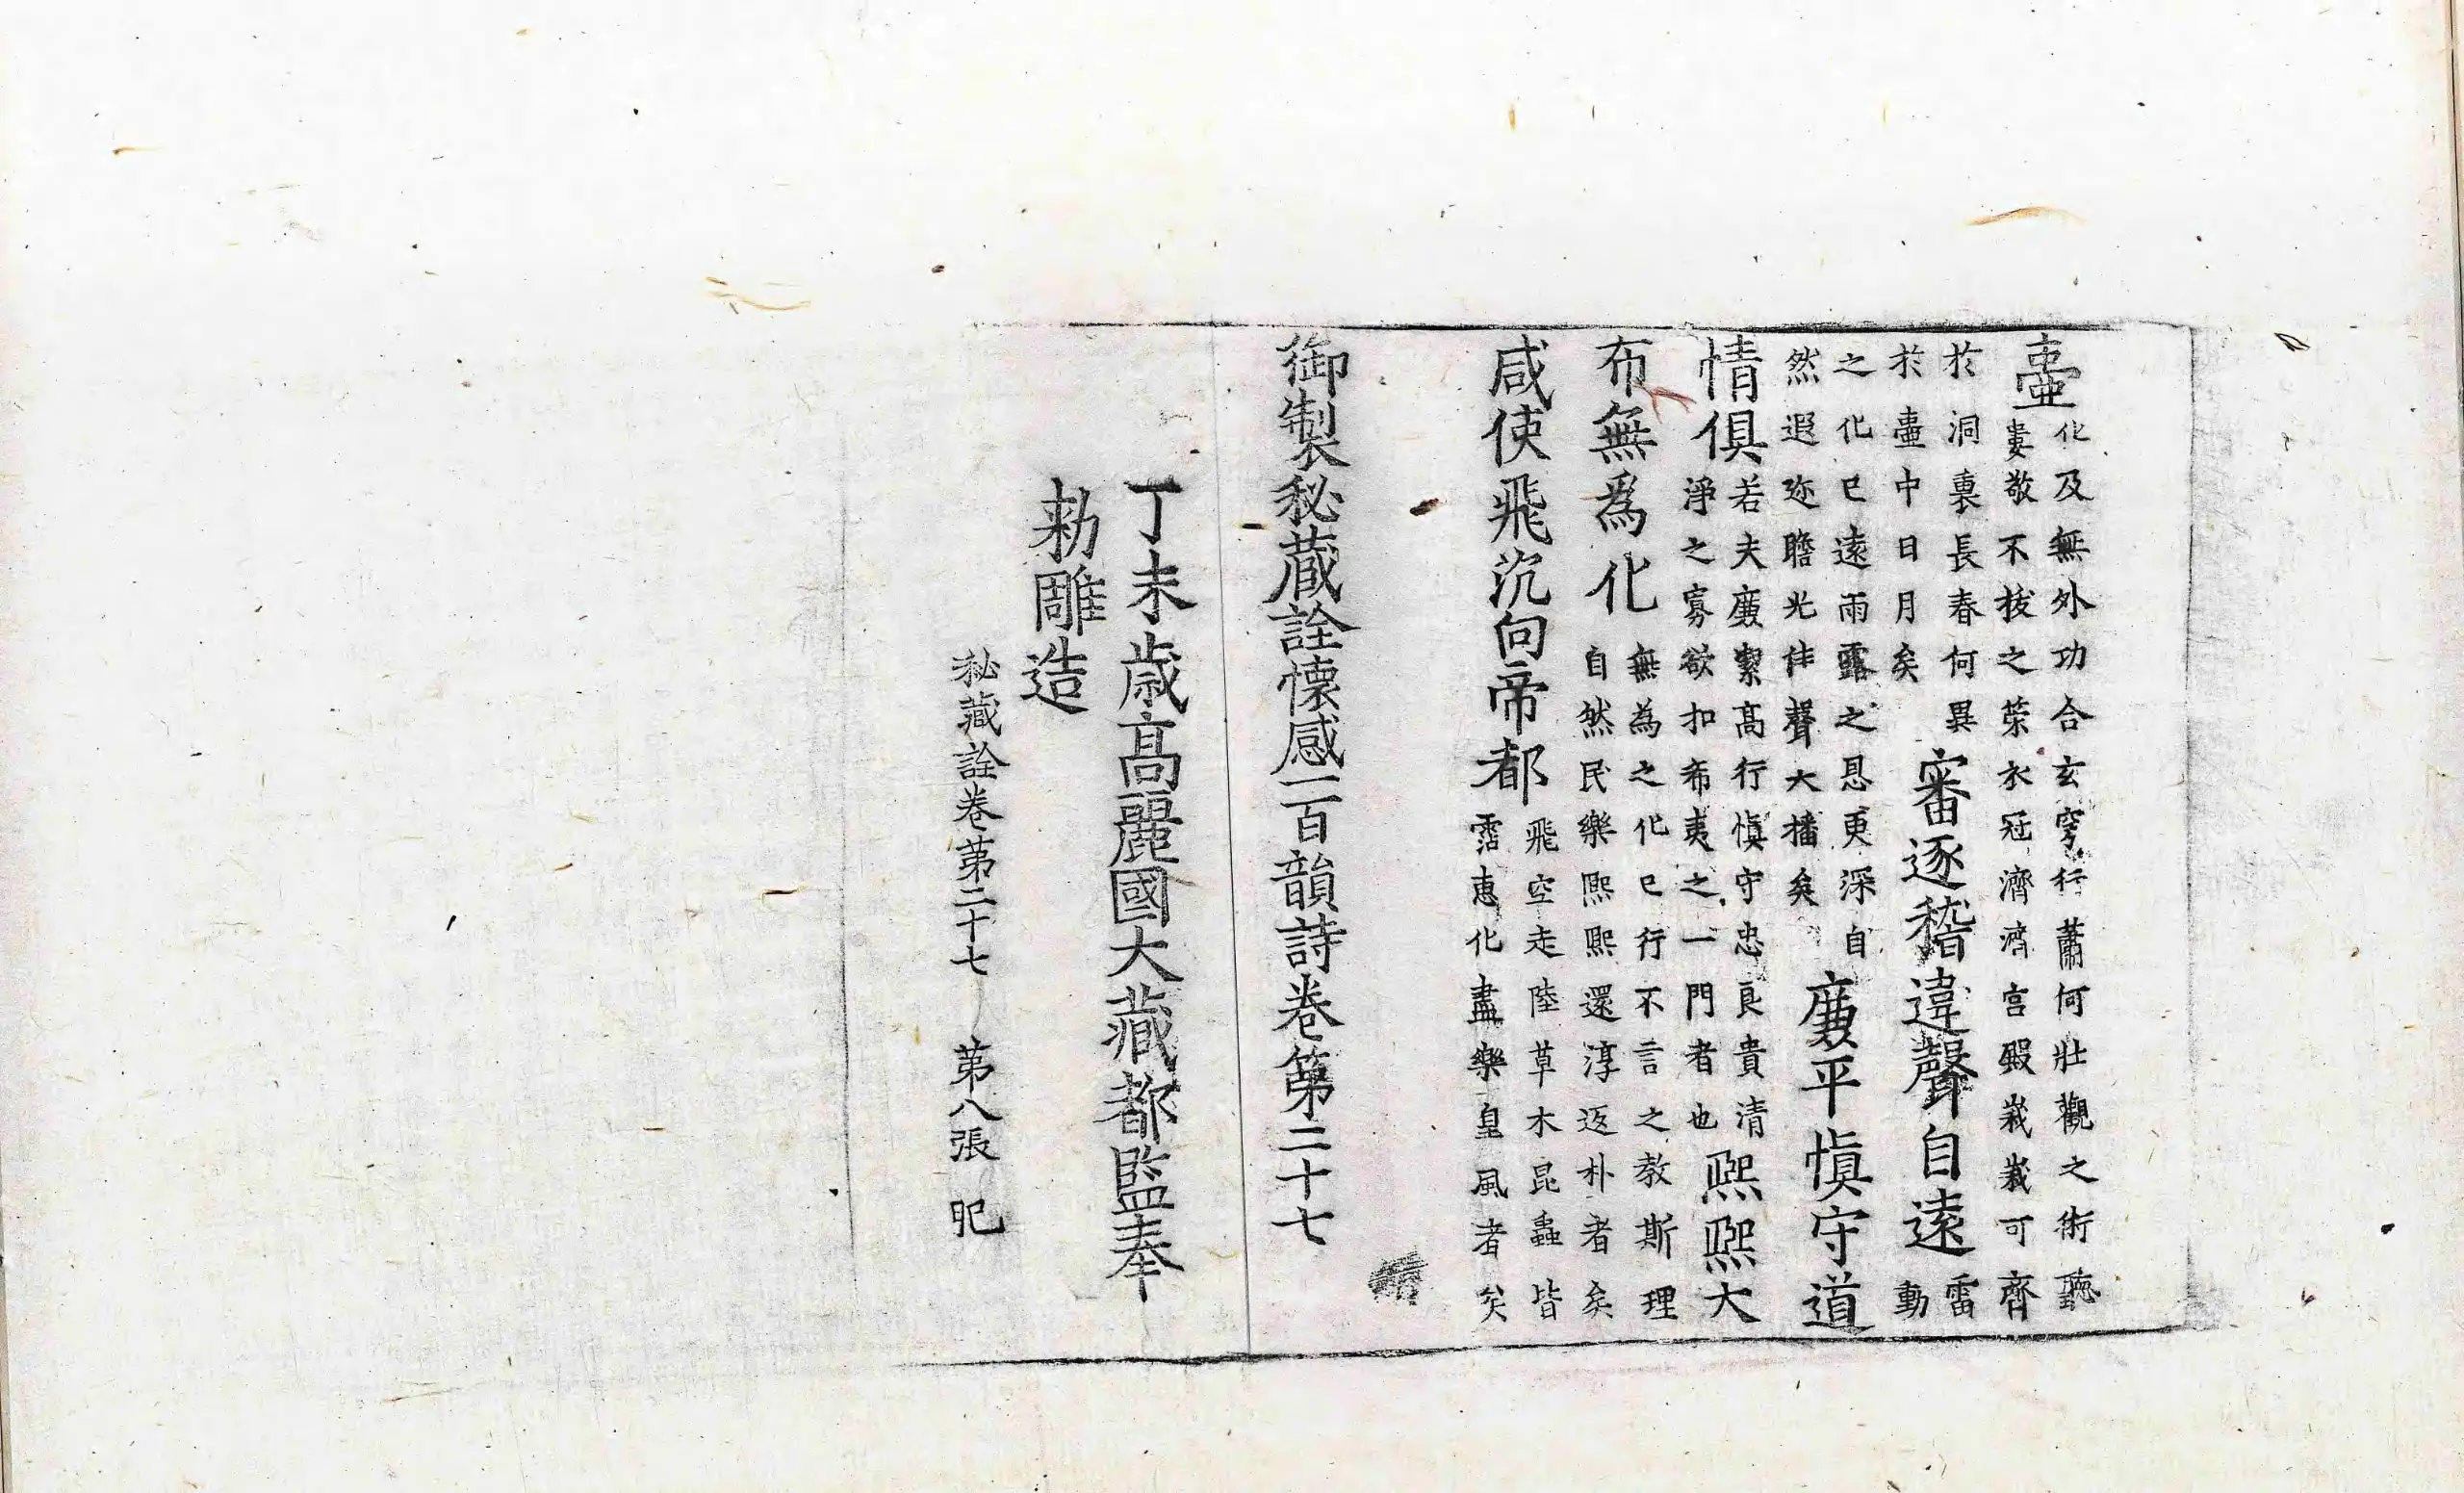 壷化及無外功合玄穹行蕭何壯觀之術聽
婁敬不拔之䇿衣冠濟濟宫殿峩峩可齊
於洞裏長春何異
於壷中日月矣
審逐稽違聲自遠雷
動
之化已遠雨露之恩更深自
然遐迩瞻光佳聲大播矣
廉平慎守道
情俱若夫廉絜高行慎守忠良貴清
淨之寡欲扣希夷之一門者也
熙熙大
布無爲化無為之化已行不言之教斯理
自然民樂熙熙還淳返朴者矣
咸使飛沉向帝都飛空走陸草木昆蟲皆
霑惠化盡樂皇風者矣
御製秘蔵詮懷感一百韻詩卷第二十七
丁未歲高麗國大藏都監奉
勑雕造
秘藏詮卷第二十七 第八張